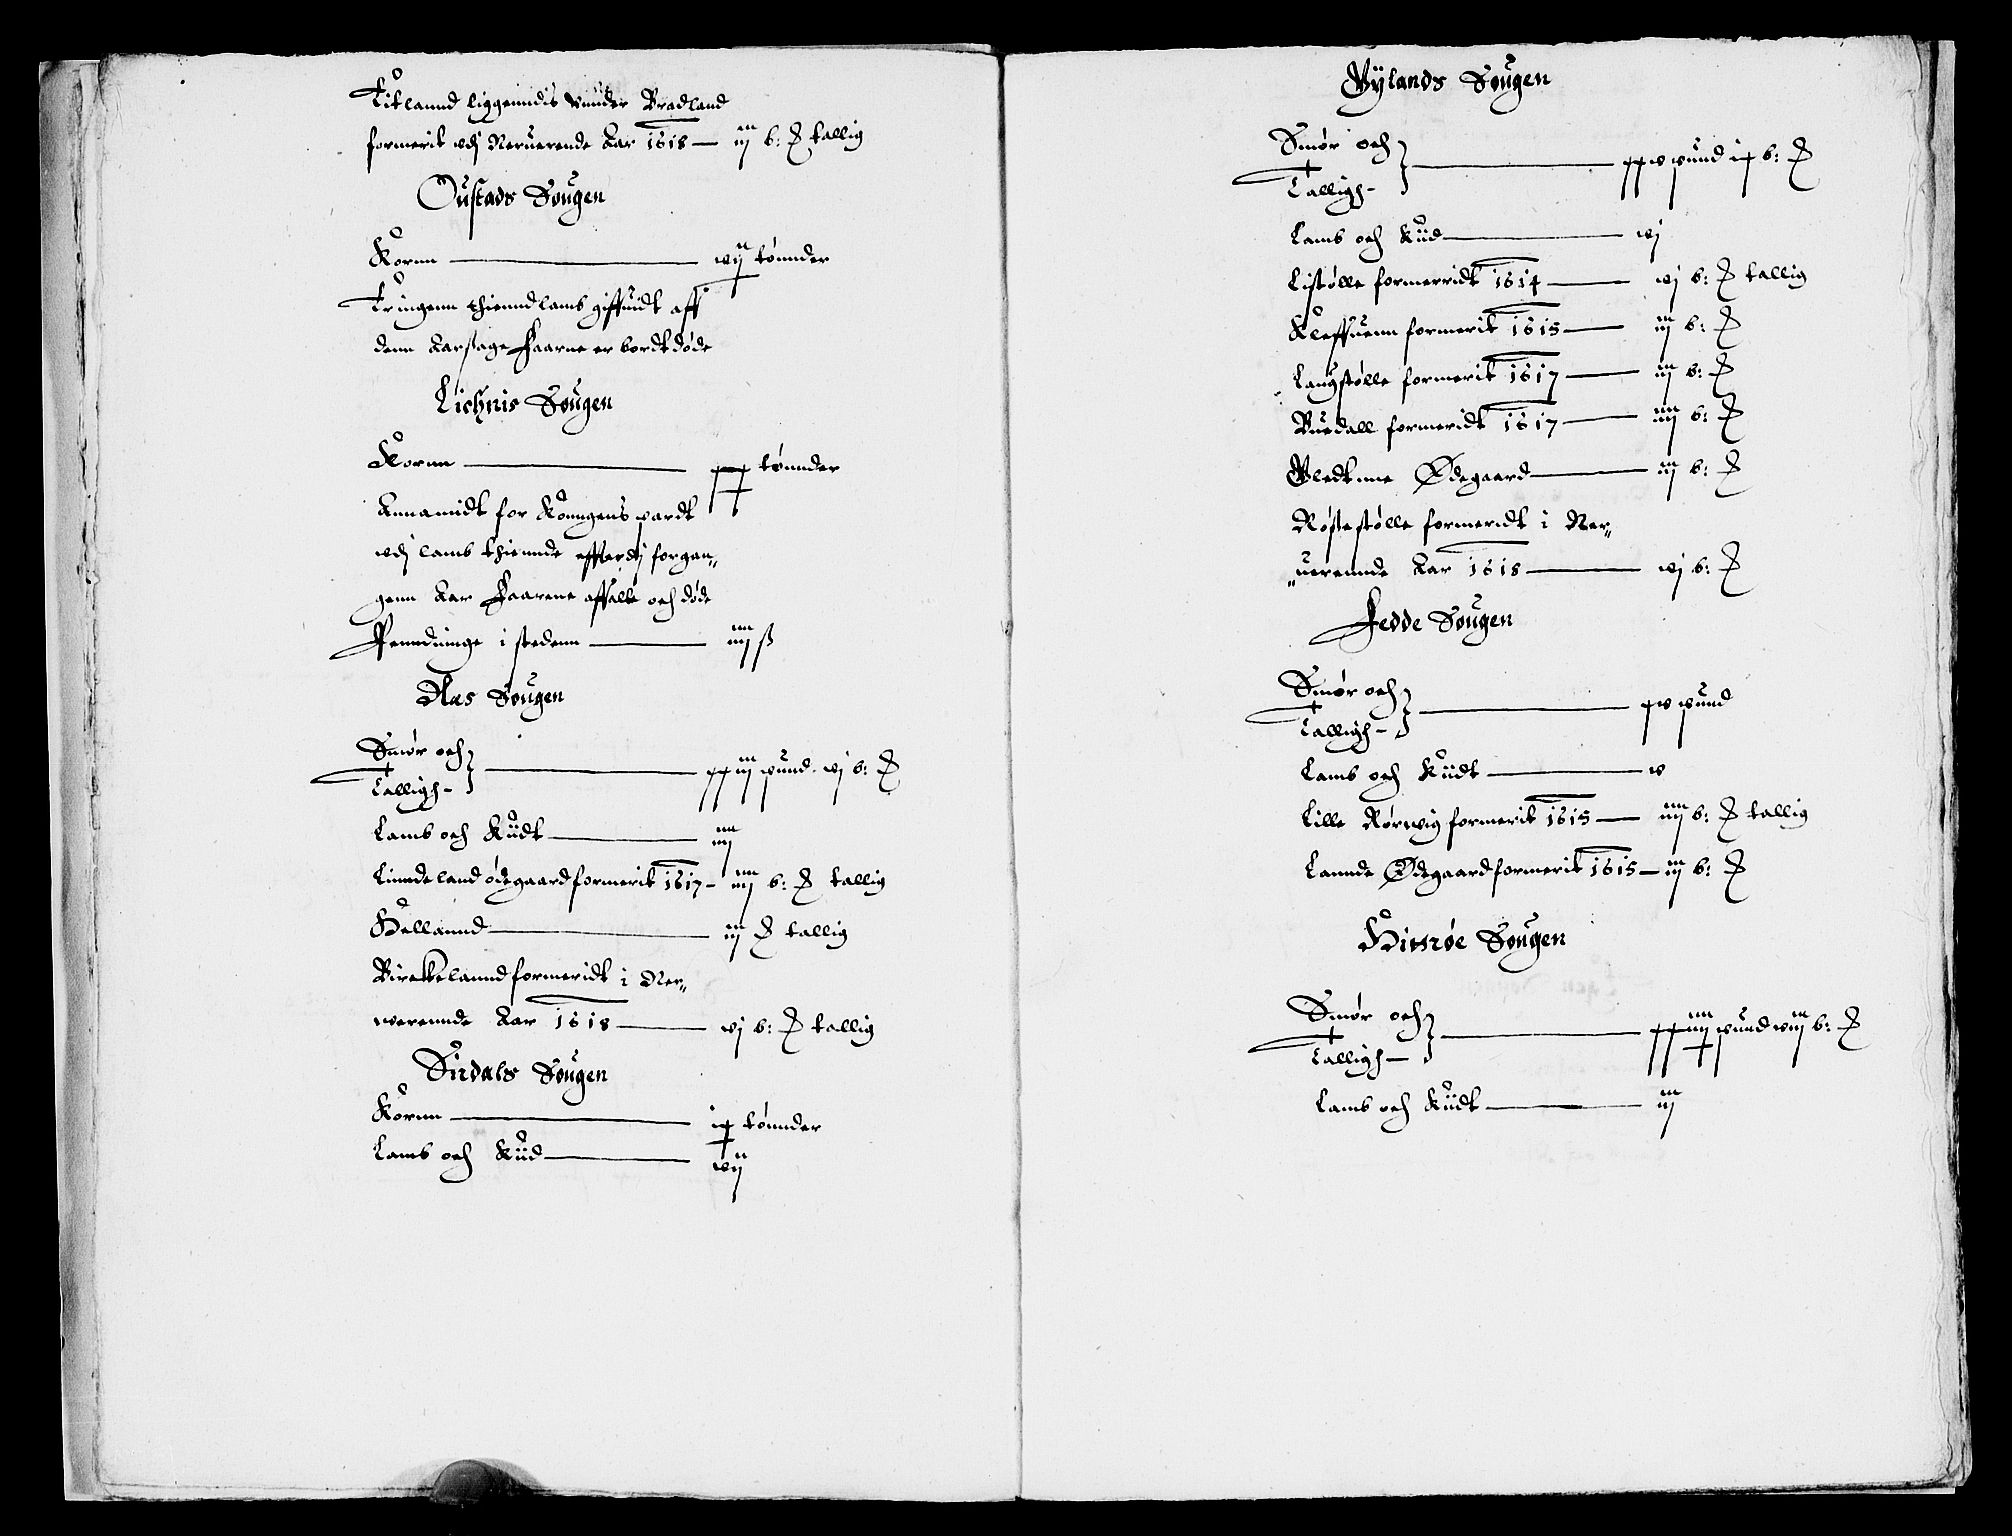 Titlannd liggenndis Vnnder Bradland
formerit vdj Neruerende Aar 1618 — iij b: ℔ tallig
Oustads Sougen
Kornn — vij tønnder
Tringenn thiennd lamb giffuidt aff
denn Aarsage Faarne er bordt døde
Lichnis Sougen
Kornn — xx tønnder
Annamidt for Konngens part
vdj lamb thiennde effterdj forgan„
genn Aar Faarene affalte och døde
Penndninge i stedenn — iiij ß
Aas Sougen
Smør och
Talligh — xxiij pund vj b: ℔
Lamb och Kiidt — iiij
Linndeland ødegaard formerit 1617 — iiij b: ℔ tallig
Hellannd — iij ℔ tallig
Birckelannd formeridt i Ner„
werennde Aar 1618 — vj b: ℔ tallig
Sirdals Sougen
Kornn — ix tønnder
Lamb och Kiid — vij
Bylands Sougen
Smør och
Talligh — xxv pund ix b: ℔
Lamb och Kiid — vj
Listølle formerridt 1614 — vj b: ℔ tallig
Kleffuenn formerit 1615 — iij b: ℔
Langstølle formerit 1617 — iij b: ℔
Buedall formeridt 1617 — iiij b: ℔
Ødegaard — iij b: ℔
Røstestølle formeridt i Ner„
„uerennde Aar 1618 — vj b: ℔
Fedde Sougen
Smør och
Talligh — xv pund
Lamb och Kiidt — v
Lille Rørwig formerit 1615 — iiij b: ℔ tallig
Lannde Ødegaard formerit 1615 — iij b: ℔
Hitsrøe Sougen
Smør och
Talligh — xxiiij pund viij b: ℔
Lamb och Kiidt — iij